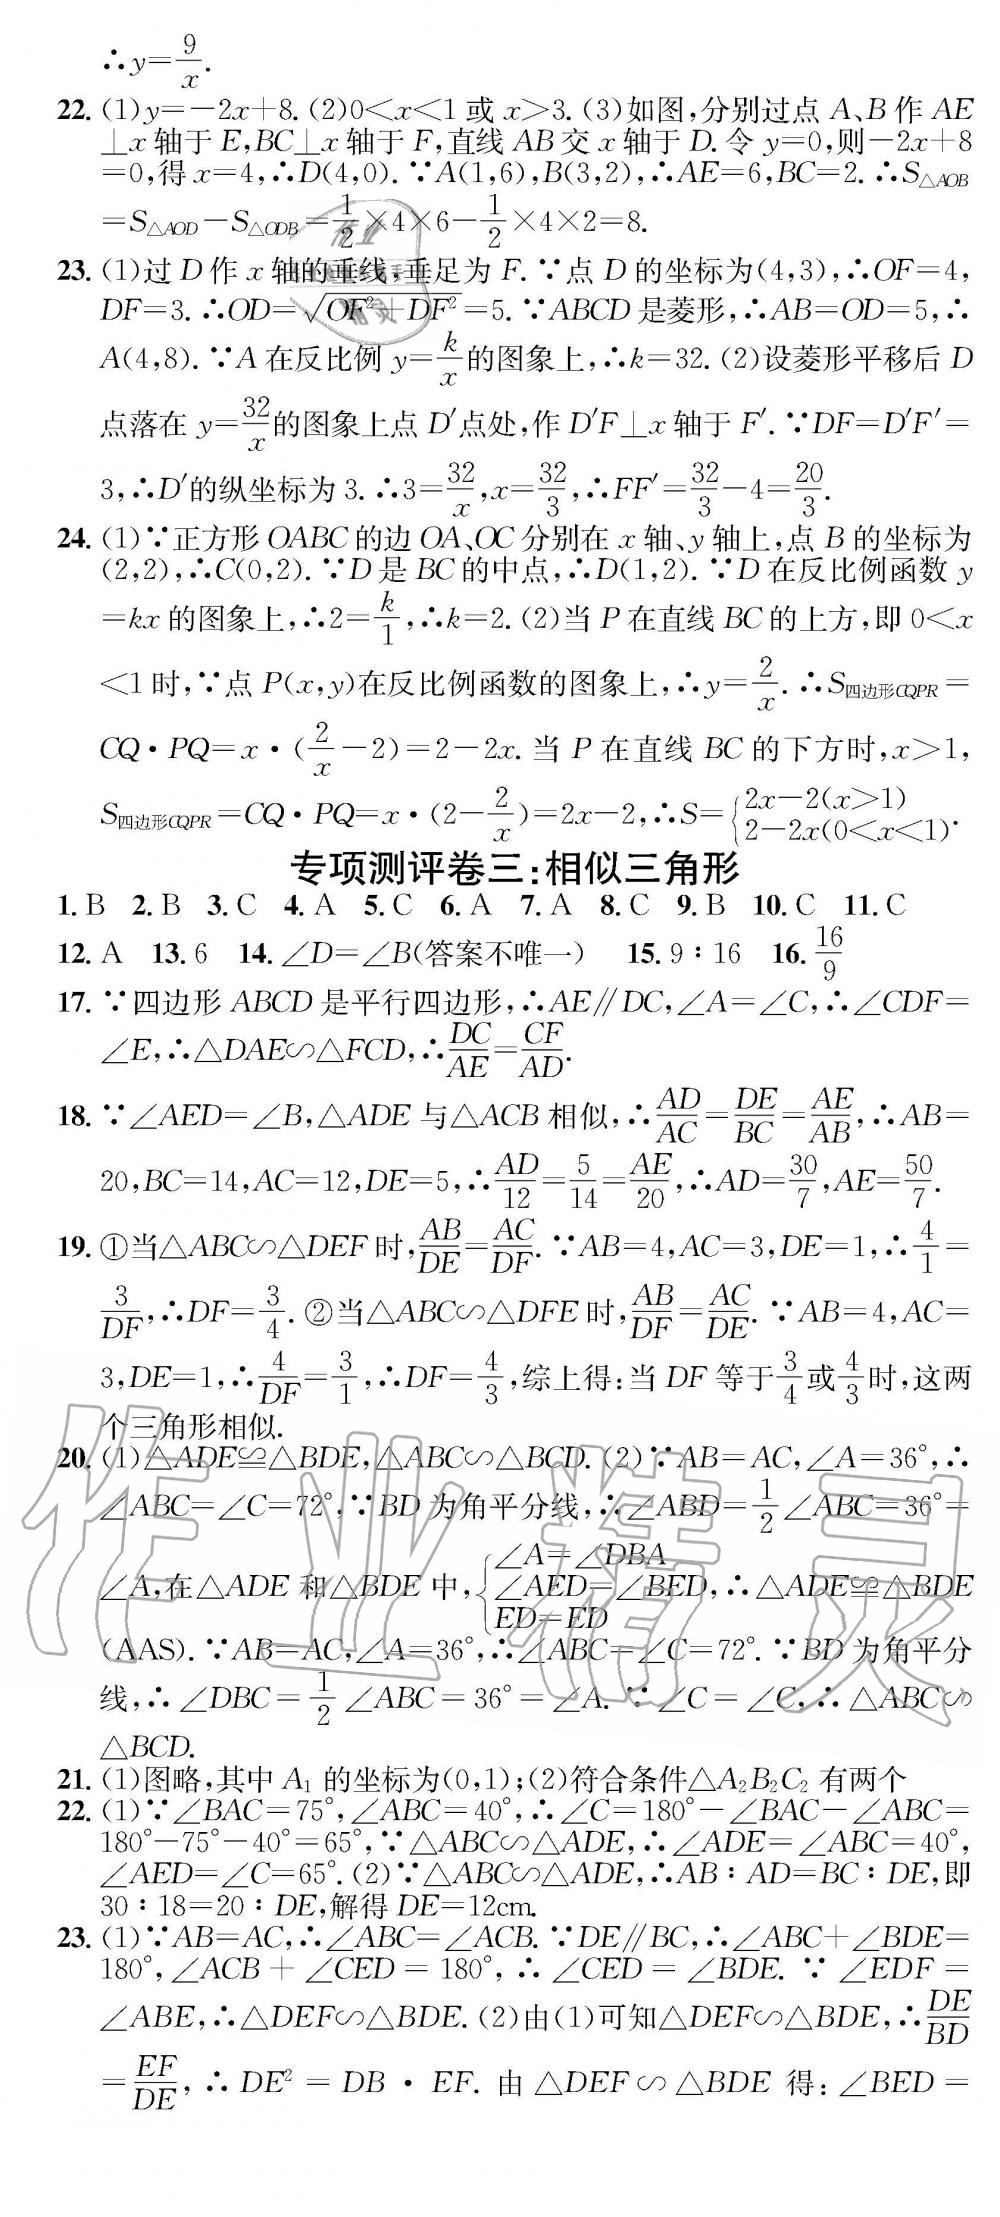 ∴y=9/x.
22. (1)y=−2x+8. (2)0<x<1 或 x>3. (3)如图,分别过点 A、B 作 AE
⊥x 轴于 E,BC⊥x 轴于 F,直线 AB 交 x 轴于 D. 令 y=0,则−2x+8
=0,得 x=4,∴D(4,0). ∵A(1,6),B(3,2),∴AE=6,BC=2. ∴S△AOB
=S△AOD−S△ODB=1/2×4×6−1/2×4×2=8.
23. (1)过 D 作 x 轴的垂线,垂足为 F. ∵点 D 的坐标为(4,3),∴OF=4,
DF=3. ∴OD=√(OF²+DF²)=5. ∵ABCD 是菱形,∴AB=OD=5,∴
A(4,8). ∵A 在反比例 y=k/x 的图象上,∴k=32. (2)设菱形平移后 D
点落在 y=32/x的图象上点 D′点处,作 D′F⊥x 轴于 F′. ∵DF=D′F′=
3,∴D′的纵坐标为 3. ∴3=32/x,x=32/3,∴FF′=32/3−4=20/3.
24. (1)∵正方形 OABC 的边 OA、OC 分别在 x 轴、y 轴上,点 B 的坐标为
(2,2),∴C(0,2). ∵D 是 BC 的中点,∴D(1,2). ∵D 在反比例函数 y
=kx 的图象上,∴2=k/1,∴k=2. (2)当 P 在直线 BC 的上方,即 0<x
<1 时,∵点 P(x,y)在反比例函数的图象上,∴y=2/x. ∴S四边形CQPR=
CQ·PQ=x·(2/x−2)=2−2x. 当 P 在直线 BC 的下方时,x>1,
S四边形CQPR=CQ·PQ=x·(2−2/x)=2x−2,∴S={2x−2(x>1) 2−2x(0<x<1).
专项测评卷三:相似三角形
1. B 2. B 3. C 4. A 5. C 6. A 7. A 8. C 9. B 10. C 11. C
12. A 13. 6 14. ∠D=∠B(答案不唯一) 15. 9∶16 16. 16/9
17. ∵四边形 ABCD 是平行四边形,∴AE∥DC,∠A=∠C,∴∠CDF=
∠E,∴△DAE∽△FCD,∴DC/AE=CF/AD.
18. ∵∠AED=∠B,△ADE 与△ACB 相似,∴AD/AC=DE/BC=AE/AB,∴AB=
20,BC=14,AC=12,DE=5,∴AD/12=5/14=AE/20,∴AD=30/7,AE=50/7.
19. ①当△ABC∽△DEF 时,AB/DE=AC/DF. ∵AB=4,AC=3,DE=1,∴4/1=
3/DF,∴DF=3/4. ②当△ABC∽△DFE 时,AB/DF=AC/DE. ∵AB=4,AC=
3,DE=1,∴4/DF=3/1,∴DF=4/3,综上得:当 DF 等于3/4或4/3时,这两
个三角形相似.
20. (1)△ADE≌△BDE,△ABC∽△BCD. (2)∵AB=AC,∠A=36°,∴
∠ABC=∠C=72°,∵BD 为角平分线,∴∠ABD=1/2∠ABC=36°=
∠A,在△ADE 和△BDE 中,{∠A=∠DBA ∠AED=∠BED, ED=ED ∴△ADE≌△BDE
(AAS). ∵AB=AC,∠A=36°,∴∠ABC=∠C=72°. ∵BD 为角平分
线,∴∠DBC=1/2∠ABC=36°=∠A. ∵∠C=∠C,∴△ABC∽
△BCD.
21. (1)图略,其中 A₁ 的坐标为(0,1);(2)符合条件△A₂B₂C₂ 有两个
22. (1)∵∠BAC=75°,∠ABC=40°,∴∠C=180°−∠BAC−∠ABC=
180°−75°−40°=65°,∵△ABC∽△ADE,∴∠ADE=∠ABC=40°,
∠AED=∠C=65°. (2)∵△ABC∽△ADE,∴AB∶AD=BC∶DE,即
30∶18=20∶DE,解得 DE=12cm.
23. (1)∵AB=AC,∴∠ABC=∠ACB. ∵DE∥BC,∴∠ABC+∠BDE=
180°,∠ACB+∠CED=180°,∴∠CED=∠BDE. ∵∠EDF=
∠ABE,∴△DEF∽△BDE. (2)由(1)可知△DEF∽△BDE,∴DE/BD
=EF/DE,∴DE²=DB·EF. 由△DEF∽△BDE 得:∠BED=
作业精灵